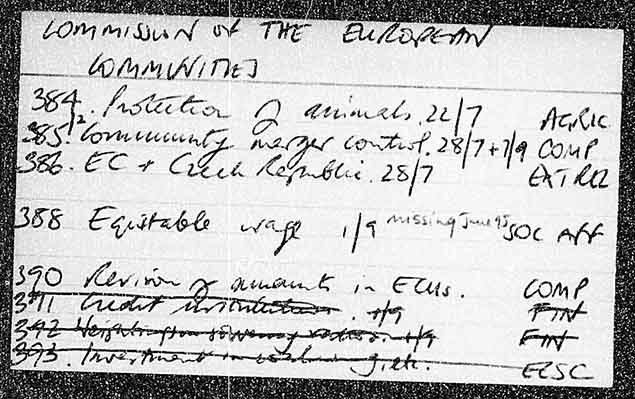 COMMISSION OF THE EUROPEAN
COMMUNITIES
384. Protection of animals. 22/7 AGRIC
385/2. Community merger control. 28/7 + 1/9 COMP
386. EC + Czech Republic. 28/7 EXT REL
388 Equitable wage 1/9 missing June 95 SOC AFF
390 Revision of amounts in ECUs. COMP
391 Credit institutions. 1/9 FIN
392 1/9 FIN
393. Investment in ECSC